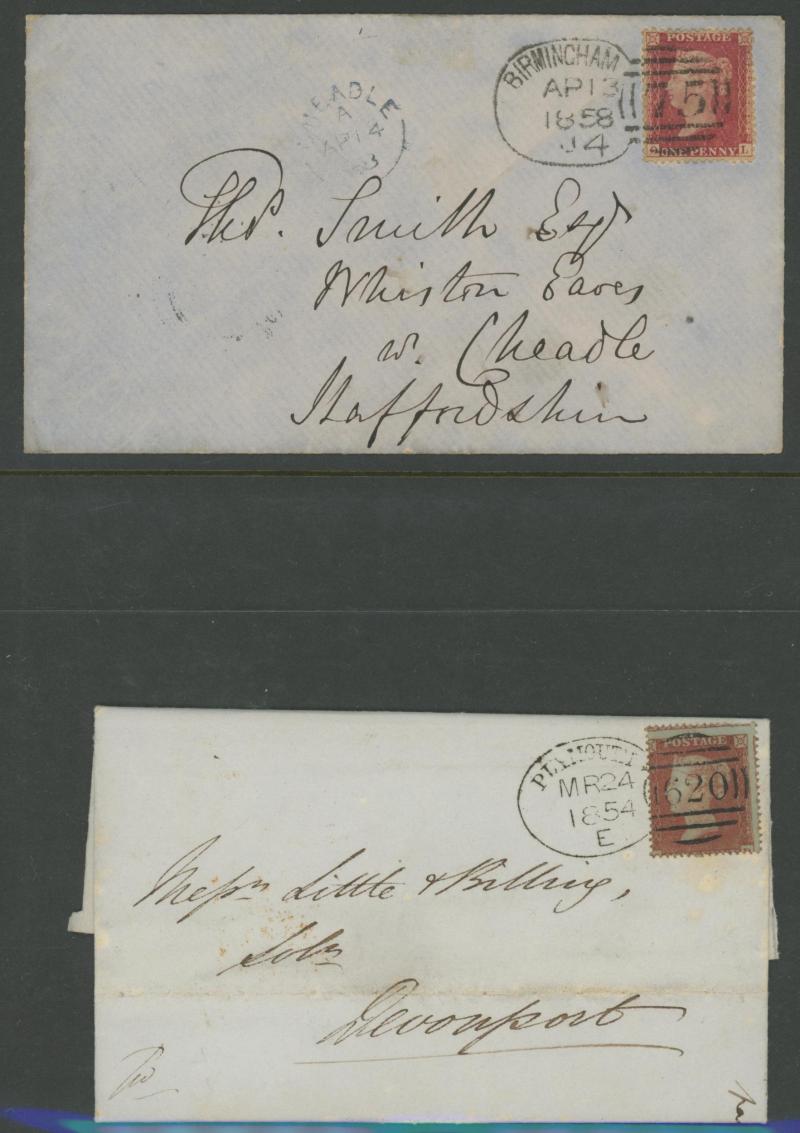 BIRMINGHAM
AP 13
1858
J4
75
POSTAGE
ONE PENNY L
HEADLE
A
AP 14
Thos. Smith Esqr
Whiston Eaves
nr. Cheadle
Staffordshire
PLYMOUTH
MR 24
1854
E
620
POSTAGE
Messrs Little & Billing,
Solrs
Devonport